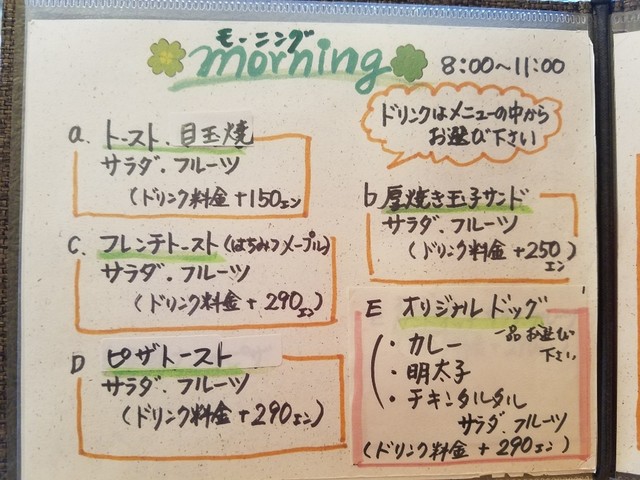 モーニング
morning 8:00～11:00
ドリンクはメニューの中から
お選び下さい
a. トースト、目玉焼
サラダ・フルーツ
(ドリンク料金+150エン
b 厚焼き玉子サンド
サラダ・フルーツ
(ドリンク料金+250エン)
C. フレンチトースト(はちみつメープル)
サラダ・フルーツ
(ドリンク料金+290エン)
D ピザトースト
サラダ・フルーツ
(ドリンク料金+290エン)
E オリジナルドッグ
一品お選び
下さい
・カレー
・明太子
・チキンタルタル
サラダ・フルーツ
(ドリンク料金+290エン)